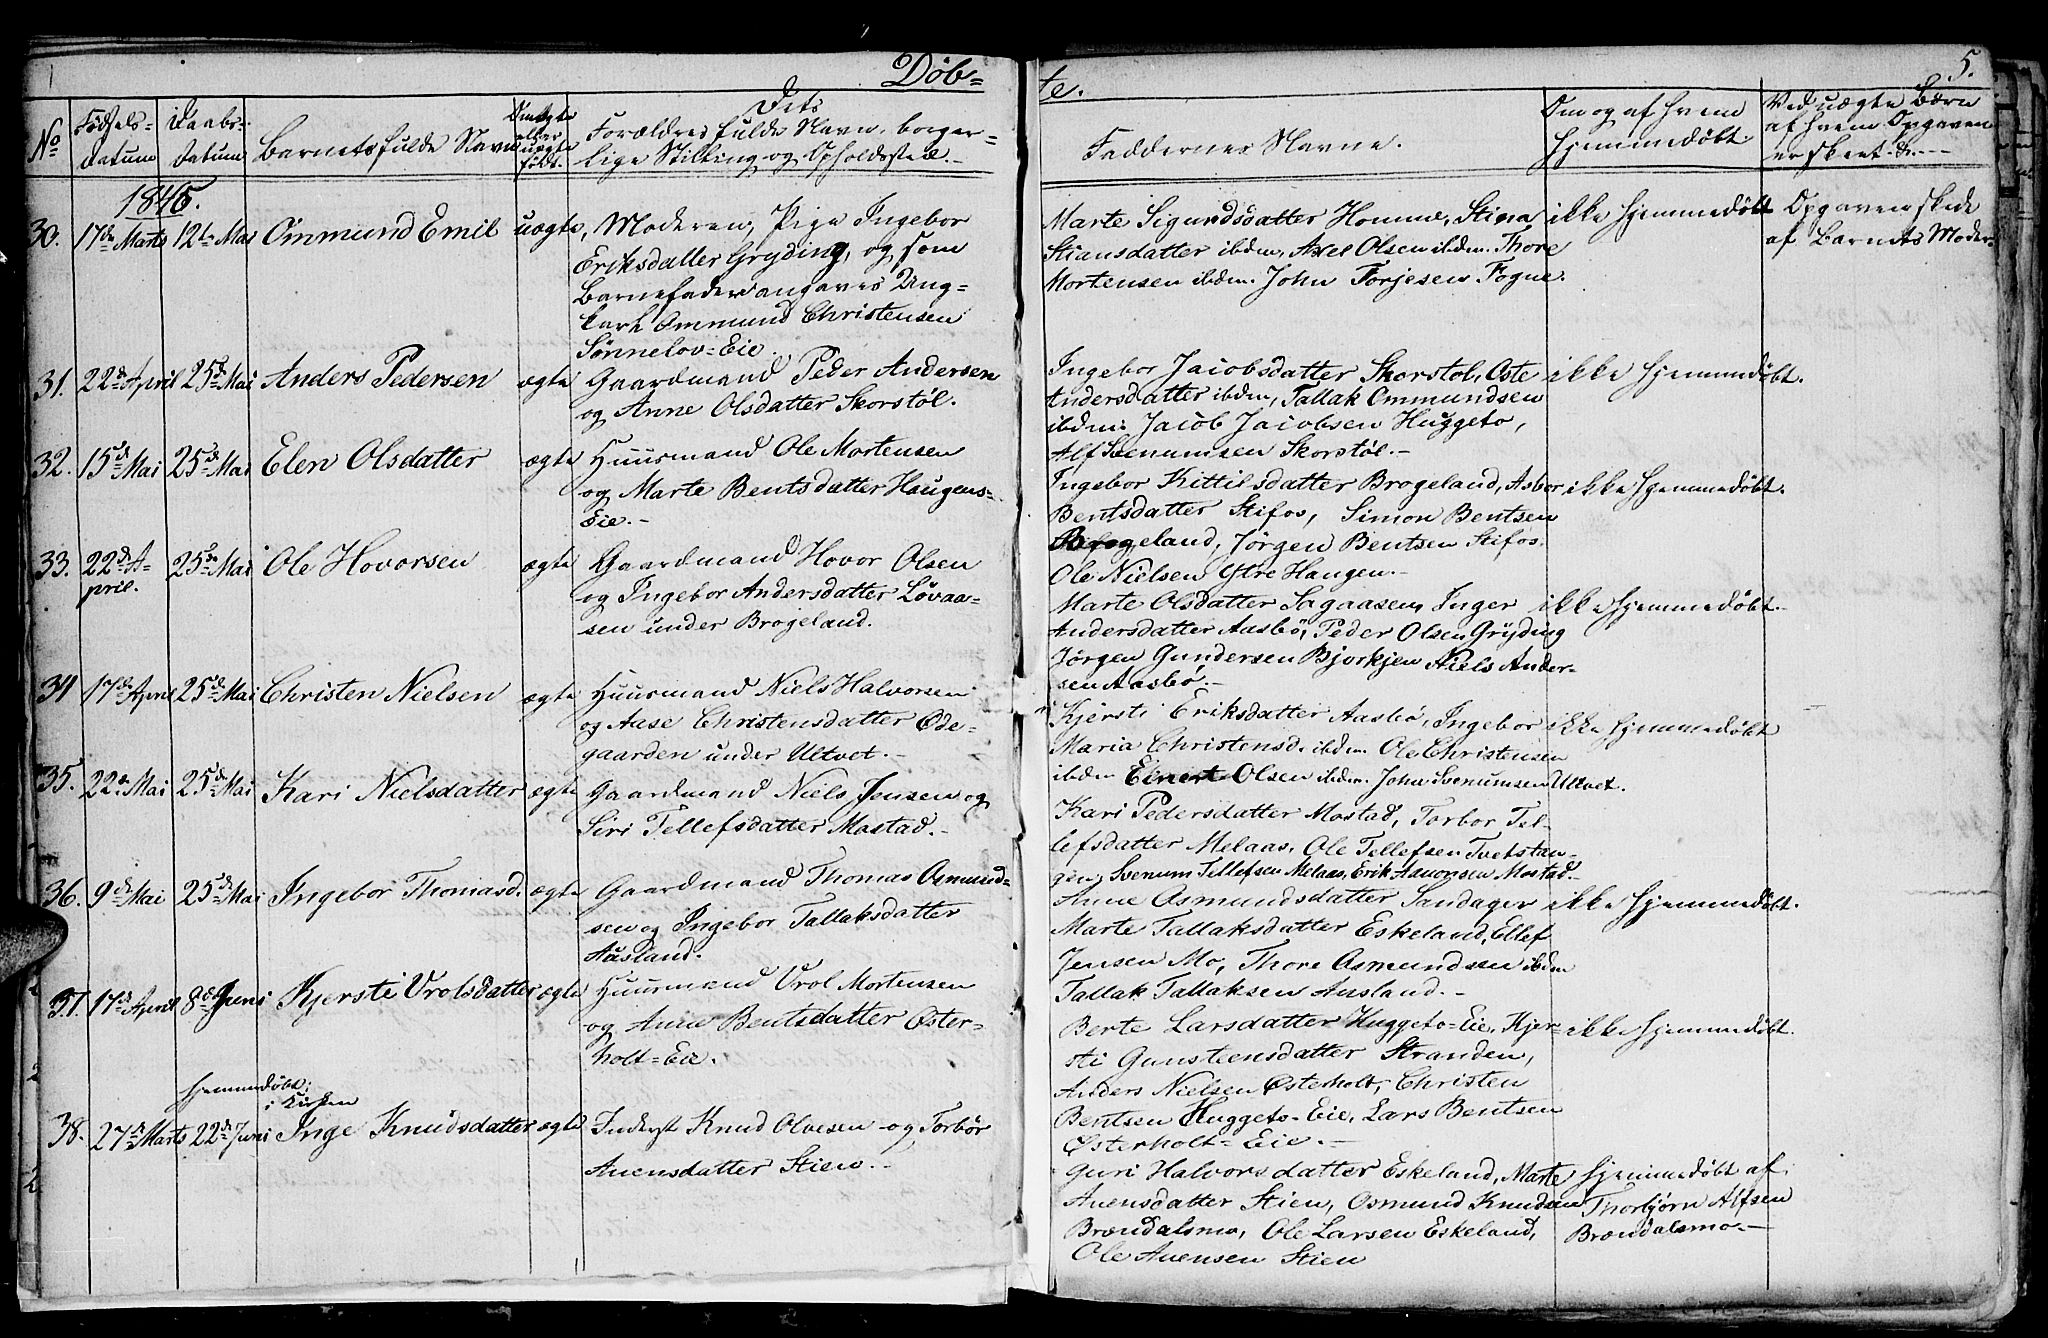 Døb=
te.
5.
No
Fødsels-
datum
Daabs-
datum
Barnets fulde Navn
Om ægte
eller
uægte
født.
Dets
Forældres fulde Navn, borger-
lige Stilling og Opholdssted.-
Faddernes Navne.
Om og af hvem
hjemmedøbt.
Ved uægte Børn
af hvem Opgaven
er skeet &.
1845.
30. 17de Marts 12te Mai Ommund Emil uægte, Moderen, Pige Ingebor
Eriksdatter Gryding, og som
Barnefader angaves Ung-
karl Ommund Christensen
Sønnelov=Eie.
Marte Sigundsdatter Homme, Stina
Stiansdatter ibdm, Axel Olsen ibdm. Thore
Mortensen ibdm. John Torjesen Fogne.
ikke hjemmedøbt
Opgaven skede
af Barnets Moder.
31. 22de April 25de Mai Anders Pedersen ægte Gaardmand Peder Andersen
og Anne Olsdatter Skorstøl.
Ingebor Jacobsdatter Skorstøl, Oste
Andersdatter ibdm, Tallak Ommundsen
ibdm. Jacob Jacobsen Huggeto,
Alf Svenumsen Skorstøl.-
ikke hjemmedøbt.
32. 15de Mai 25de Mai Elen Olsdatter ægte Huusmand Ole Mortensen
og Marte Bentsdatter Haugens-
Eie.-
Ingebor Kittilsdatter Brogeland, Asbor
Bentsdatter Stifos, Simon Bentsen
Brogeland, Jørgen Bentsen Stifos.
Ole Nielsen Ytre Haugen.-
ikke hjemmedøbt.
33. 22de A-
pril. 25de Mai Ole Hovorsen ægte Gaardmand Hovor Olsen
og Ingebor Andersdatter Løvaa-
sen under Brogeland.
Marte Olsdatter Sagaasen, Inger
Andersdatter Aasbø, Peder Olsen Gryding
Jørgen Gundersen Bjorkjen Niels Ander-
sen Aasbø.-
ikke hjemmedøbt.
34 17de April 25de Mai Christen Nielsen ægte Huusmand Niels Halvorsen
og Aase Christensdatter Øde-
gaarden under Ultvet.-
Kjersti Eriksdatter Aasbø, Ingebor
Maria Christensd. ibdm. Ole Christensen
ibdm Olsen ibdm. John Svenumsen Ultvet.
ikke hjemmedøbt
35. 22de Mai 25de Mai Kari Nielsdatter ægte Gaardmand Niels Jensen og
Siri Tellefsdatter Mostad.-
Kari Pedersdatter Mostad, Torbor Tel-
lefsdatter Melaas, Ole Tellefsen Tvetstan-
gen, Svenum Tellefsen Melaas, Erik Asmonsen Mostad.
36. 9de Mai 25de Mai Ingebor Thomasd. ægte Gaardmand Thomas Osmund-
sen og Ingebor Tallaksdatter
Aasland.
Anne Osmundsdatter Sandager
Marte Tallaksdatter Eskeland, Ellef
Jensen Mo, Thore Osmundsen ibdm
Tallak Tallaksen Aasland.-
ikke hjemmedøbt.
37. 17de April 8de Juni Kjersti Vrolsdatter ægte Huusmand Vrol Mortensen
og Anne Bentsdatter Øster-
holt=Eie.
Berte Larsdatter Huggeto=Eie, Kjer-
sti Gunsteensdatter Stranden,
Anders Nielsen Østerholt, Christen
Bentsen Huggeto-Eie, Lars Bentsen
Østerholt=Eie.-
ikke hjemmedøbt.
hjemmedøbt;
i Kirken
38. 27de Marts 22de Juni Inge Knudsdatter ægte Inderst Knud Olvesen og Torbør
Auensdatter Stien.-
Guri Halvorsdatter Eskeland, Marte
Auensdatter Stien, Osmund Knudsen
Brændalsmo, Ole Larsen Eskeland,
Ole Auensen Stien
hjemmedøbt af
Thorbjørn Alfsen
Brændalsmo.-